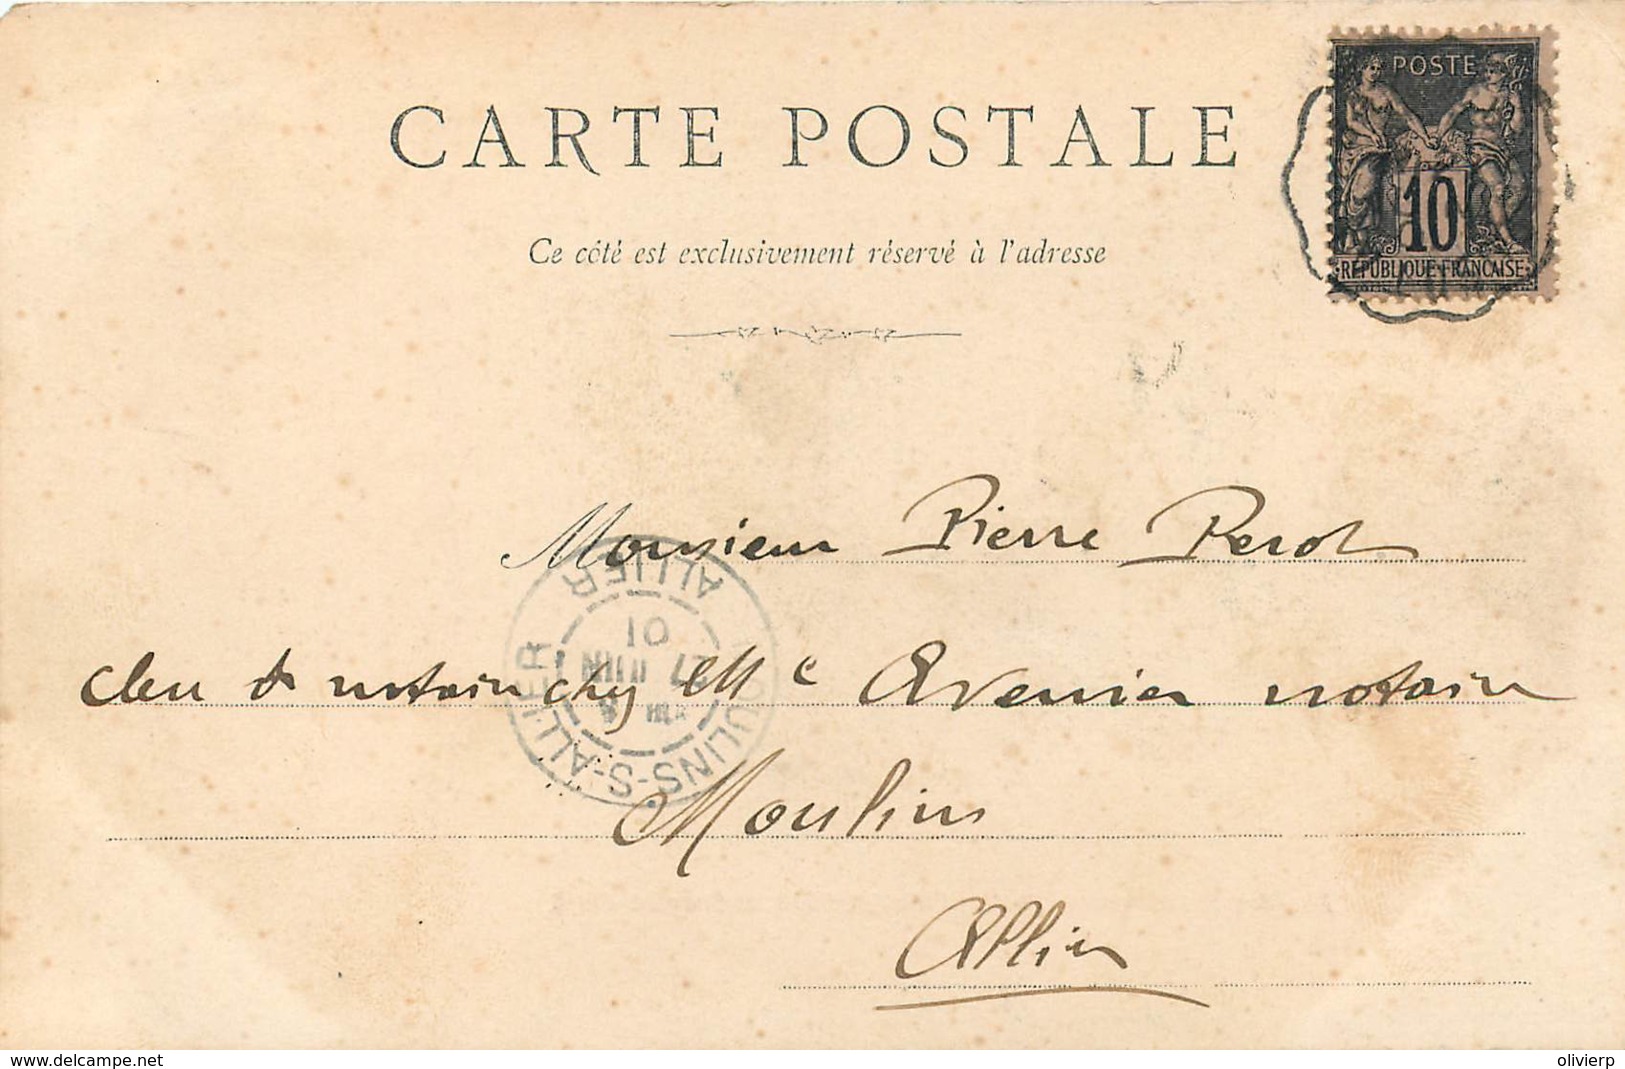 CARTE POSTALE
Ce côté est exclusivement réservé à l'adresse
POSTE
10
RÉPUBLIQUE FRANÇAISE
Monsieur Pierre Perot
clerc de notaire chez Me Avenier notaire
Moulins
Allier
MOULINS-S-ALLIER
ALLIER
27 JUIN
01
delcampe.net
olivierp